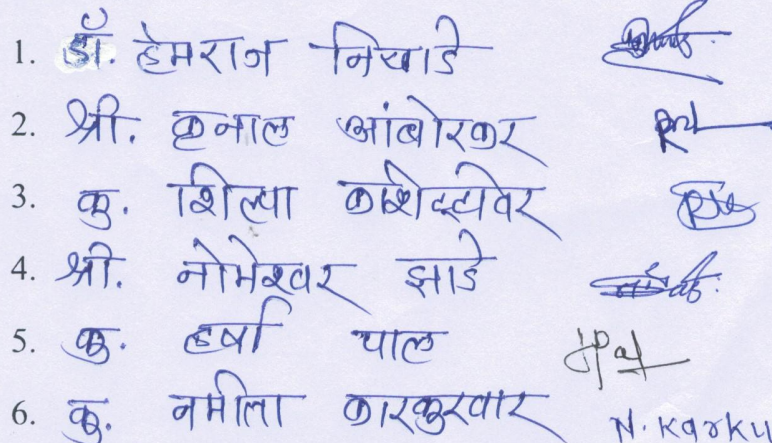 1. डॉ. हेमराज निखाडे
2. श्री. कुनाल आंबोरकर
3. कु. शिल्पा
4. श्री. नोमेश्वर झाडे
5. कु. हर्षा पाल Pal
6. कु. नमीला कारकुरवार N. Karku